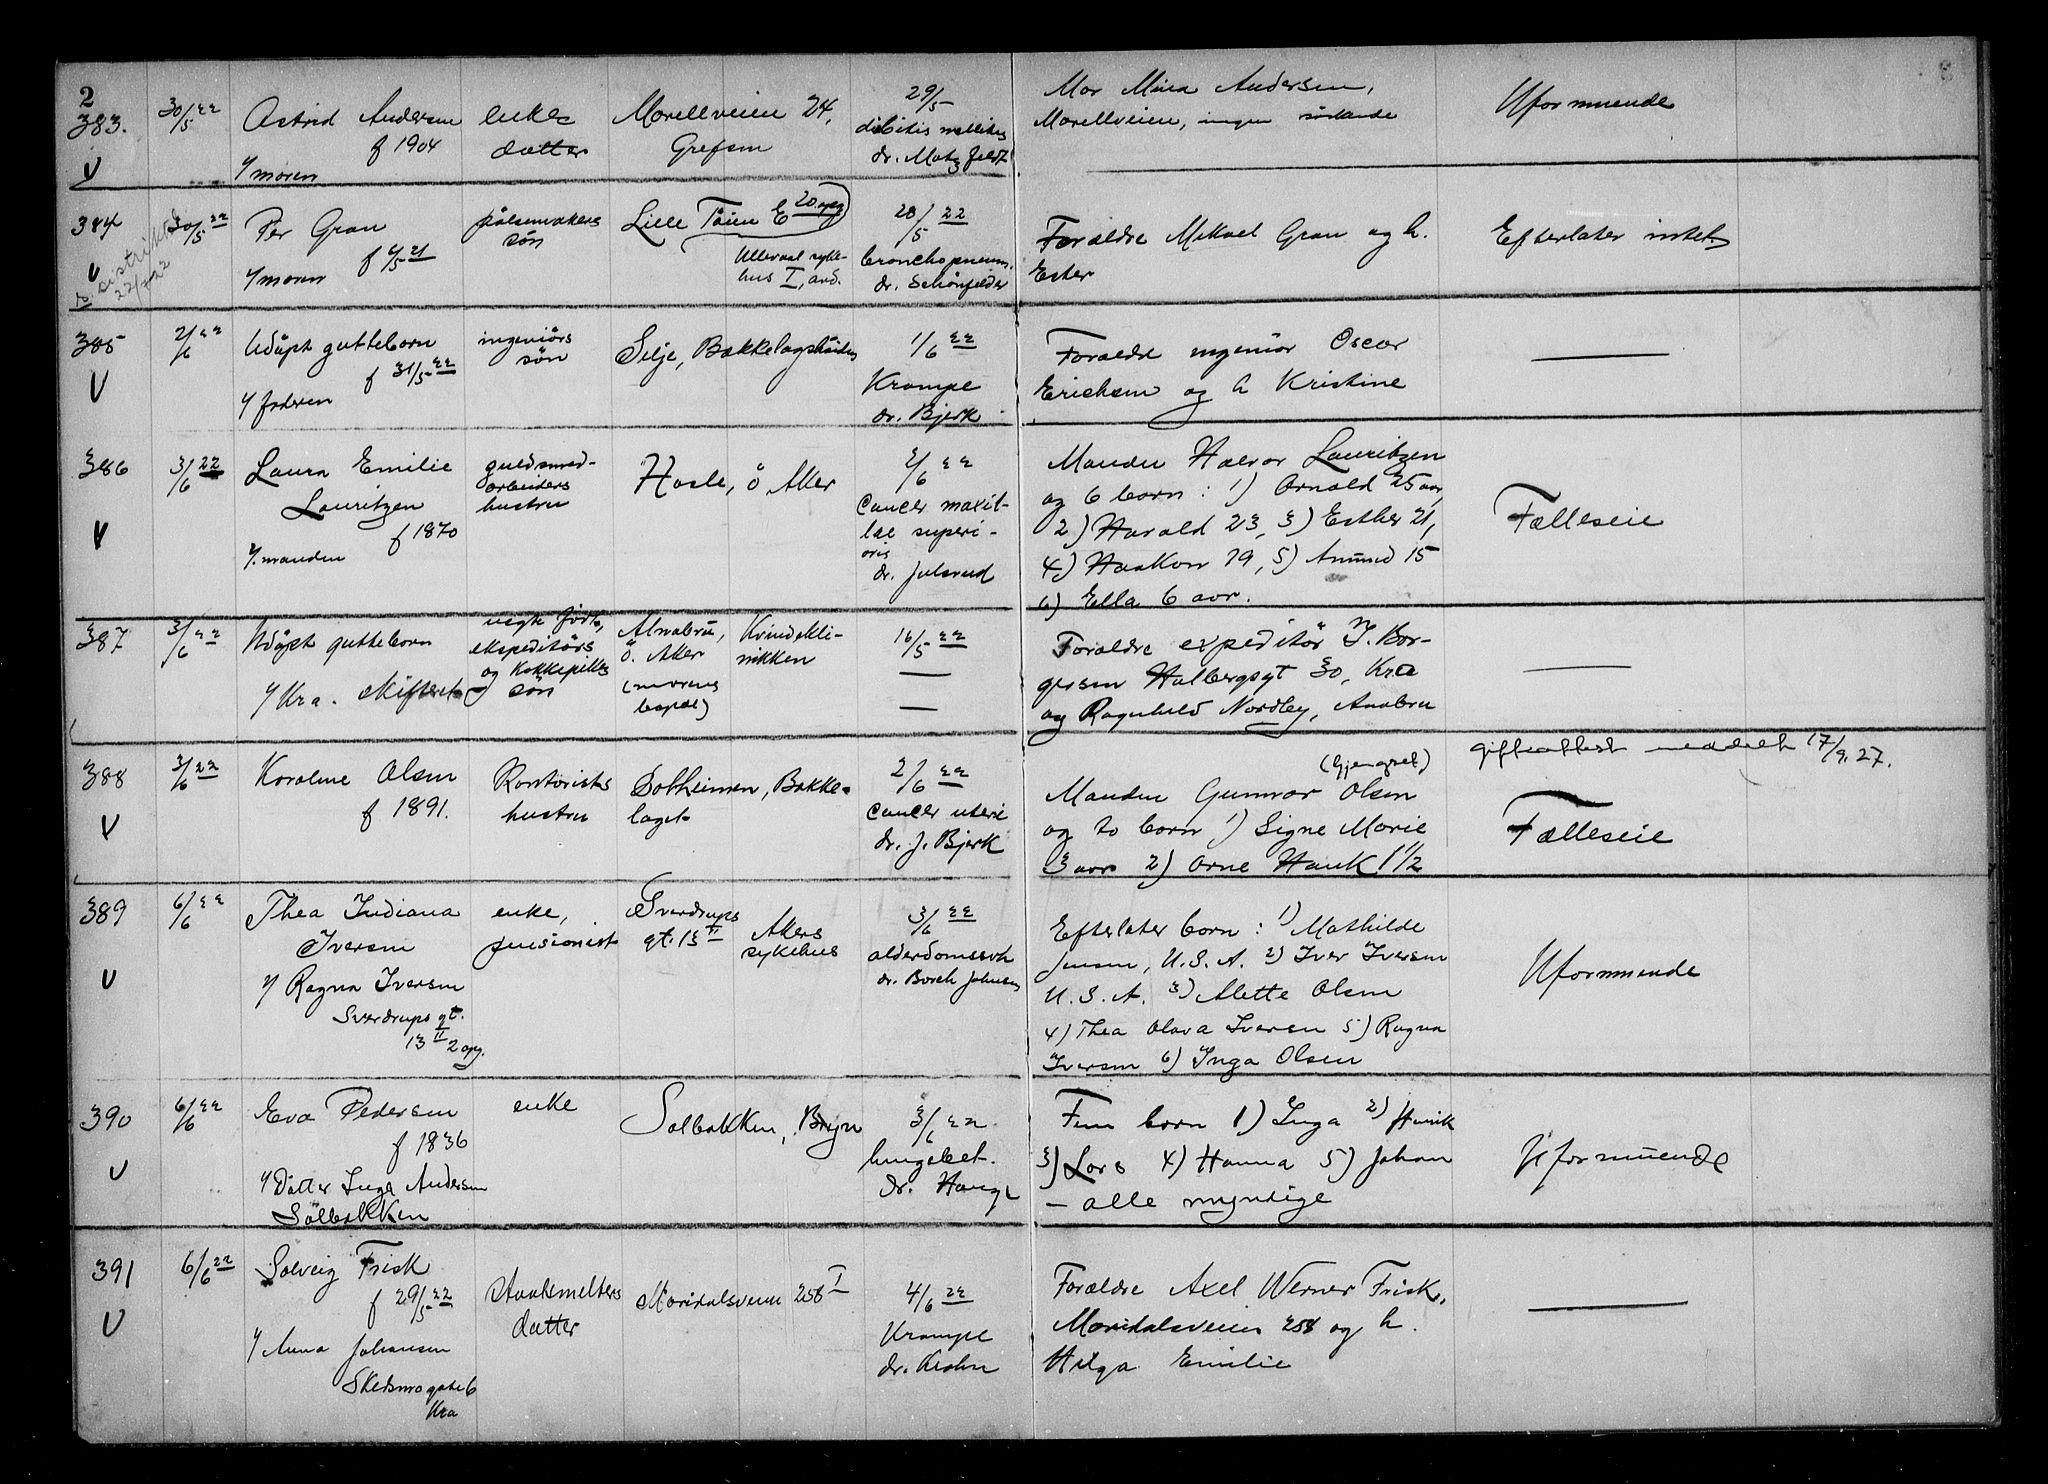 2
383.
V
30/5 22
Astrid Andersen
f 1904
v/ moren
enkes
datter
Morellveien 24,
Grefsen
29/5
diabetis mellitus
dr. Motzfeldt
Mor Mina Andersen,
Morellveien, ingen söskende
Uformuende
384
V
distrikts
22/7 22
30/5 22
Per Gran
f 4/5 21
v/ moren
pölsemakers
sön
Lille Töien E 20 opg
Ullevaal syke-
hus I, avd.
28/5 22
bronchopneum.
dr. Schönfelder
Forældre Mikael Gran og h.
Ester
Efterlater intet
385
V
2/6 22
Udöpt guttebarn
f 31/5 22
v/ faderen
ingeniörs
sön
Selje, Bækkelagshöiden
1/6 22
Krampe
dr. Bjerk
Forældre ingeniör Oscar
Ericksen og h Kristine
386
V
3/6 22
Laura Emilie
Lauritzen
f 1870
v/ manden
guldsmed-
arbeiders
hustru
Hasle, Ö Aker
2/6 22
Cancer maxil-
lae superi-
oris
dr. Julsrud
Manden Halvor Lauritzen
og 6 barn : 1) Arnold 25 aar,
2) Harald 23, 3) Esther 21,
4) Haakon 19, 5) Amund 15
6) Ella 6 aar.
Fælleseie
387
3/6 22
Udöpt guttebarn
v/ Kra. skifteret
uegte födt,
ekspeditörs
og kokkepikes
sön
Alnabru,
Ö. Aker
(morens
bopæl)
Kvindekli-
nikken
16/5 22
Forældre expeditör J. Bor-
gersen Holbergsgt 30, Kra
og Ragnhild Nordby, Alnabru
388
V
3/6 22
Karoline Olsen
f 1891.
Kontorists
hustru
Solheimen, Bække-
laget
2/6 22
Cancer uteri
dr. J. Bjerk
(Gjengret)
Manden Gunnar Olsen
og to barn 1) Signe Marie
3 aar 2) Arne Hauk 1 1/2
gifteattest meddelt 17/9. 27.
Fælleseie
389
V
6/6 22
Thea Indiana
Iversen
v/ Ragna Iversen
Sverdrups gt.
13 II 2 opg.
enke,
pensionist
Sverdrups
gt. 13 II
Akers
sykehus
3/6 22
alderdomssvh
dr. Borch Johnsen
Efterlater barn : 1) Mathilde
Jensen, U.S.A. 2) Iver Iversen
U.S.A. 3) Alette Olsen
4) Thea Olava Iversen 5) Ragna
Iversen 6) Inga Olsen
Uformuende
390
V
6/6 22
Eva Pedersen
f 1836
v/ Datter Inga Andersen
Solbakken
enke
Solbakken, Bryn
3/6 22
lungebet.
dr. Hauge
Fem barn 1) Inga 2) Henrik
3) Lars 4) Hanna 5) Johan
– alle myndige
Uformuende
391
V
6/6 22
Solveig Frisk
f 29/5 22
v/ Anna Johansen
Skedsmogate 6
Kra
Staalsmelters
datter
Maridalsveien 258 I
4/6 22
Krampe
dr. Krohn
Forældre Axel Werner Frisk,
Maridalsveien 258 og h.
Helga Emilie